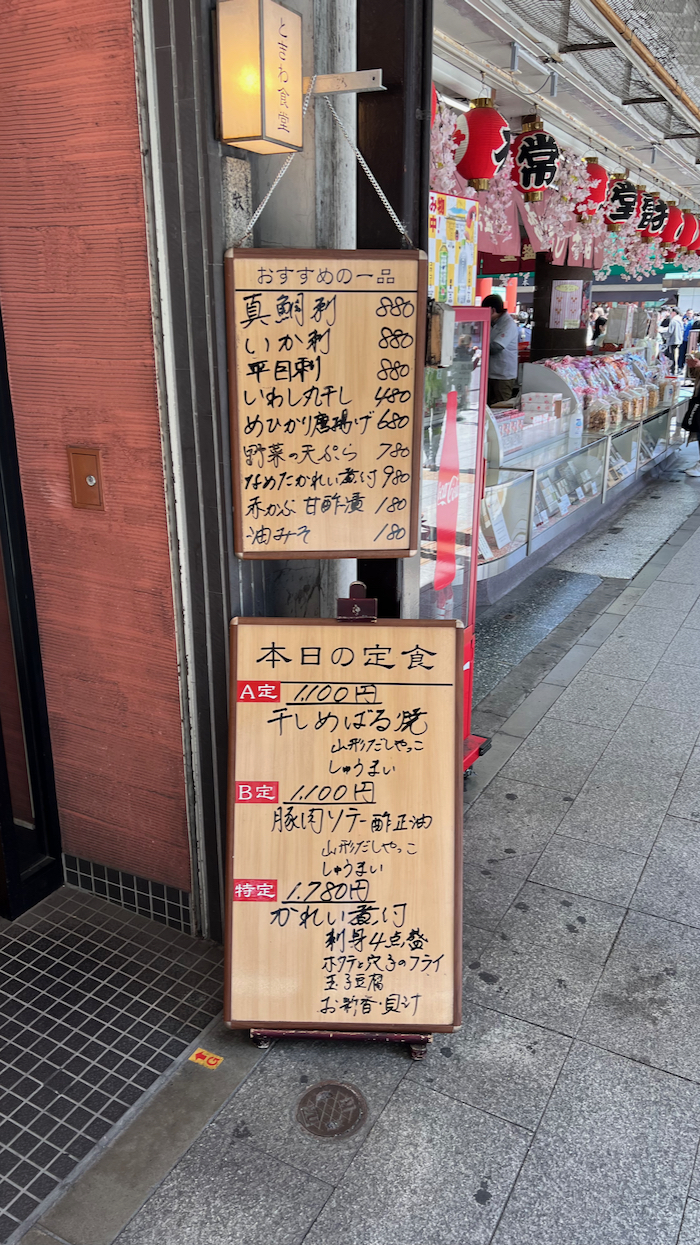 ときわ食堂
おすすめの一品
真鯛刺 880
いか刺 880
平目刺 880
いわし丸干し 480
めひかり唐揚げ 680
野菜の天ぷら 780
なめたかれい煮付 980
赤かぶ甘酢漬 180
油みそ 180
本日の定食
A定 1,100円
干しめばる焼
山形だしやっこ
しゅうまい
B定 1,100円
豚肉ソテー酢正油
山形だしやっこ
しゅうまい
特定 1,780円
かれい煮付
刺身4点盛
ホタテと穴子のフライ
玉子豆腐
お新香・貝汁
常
堂
Coca-Cola
G